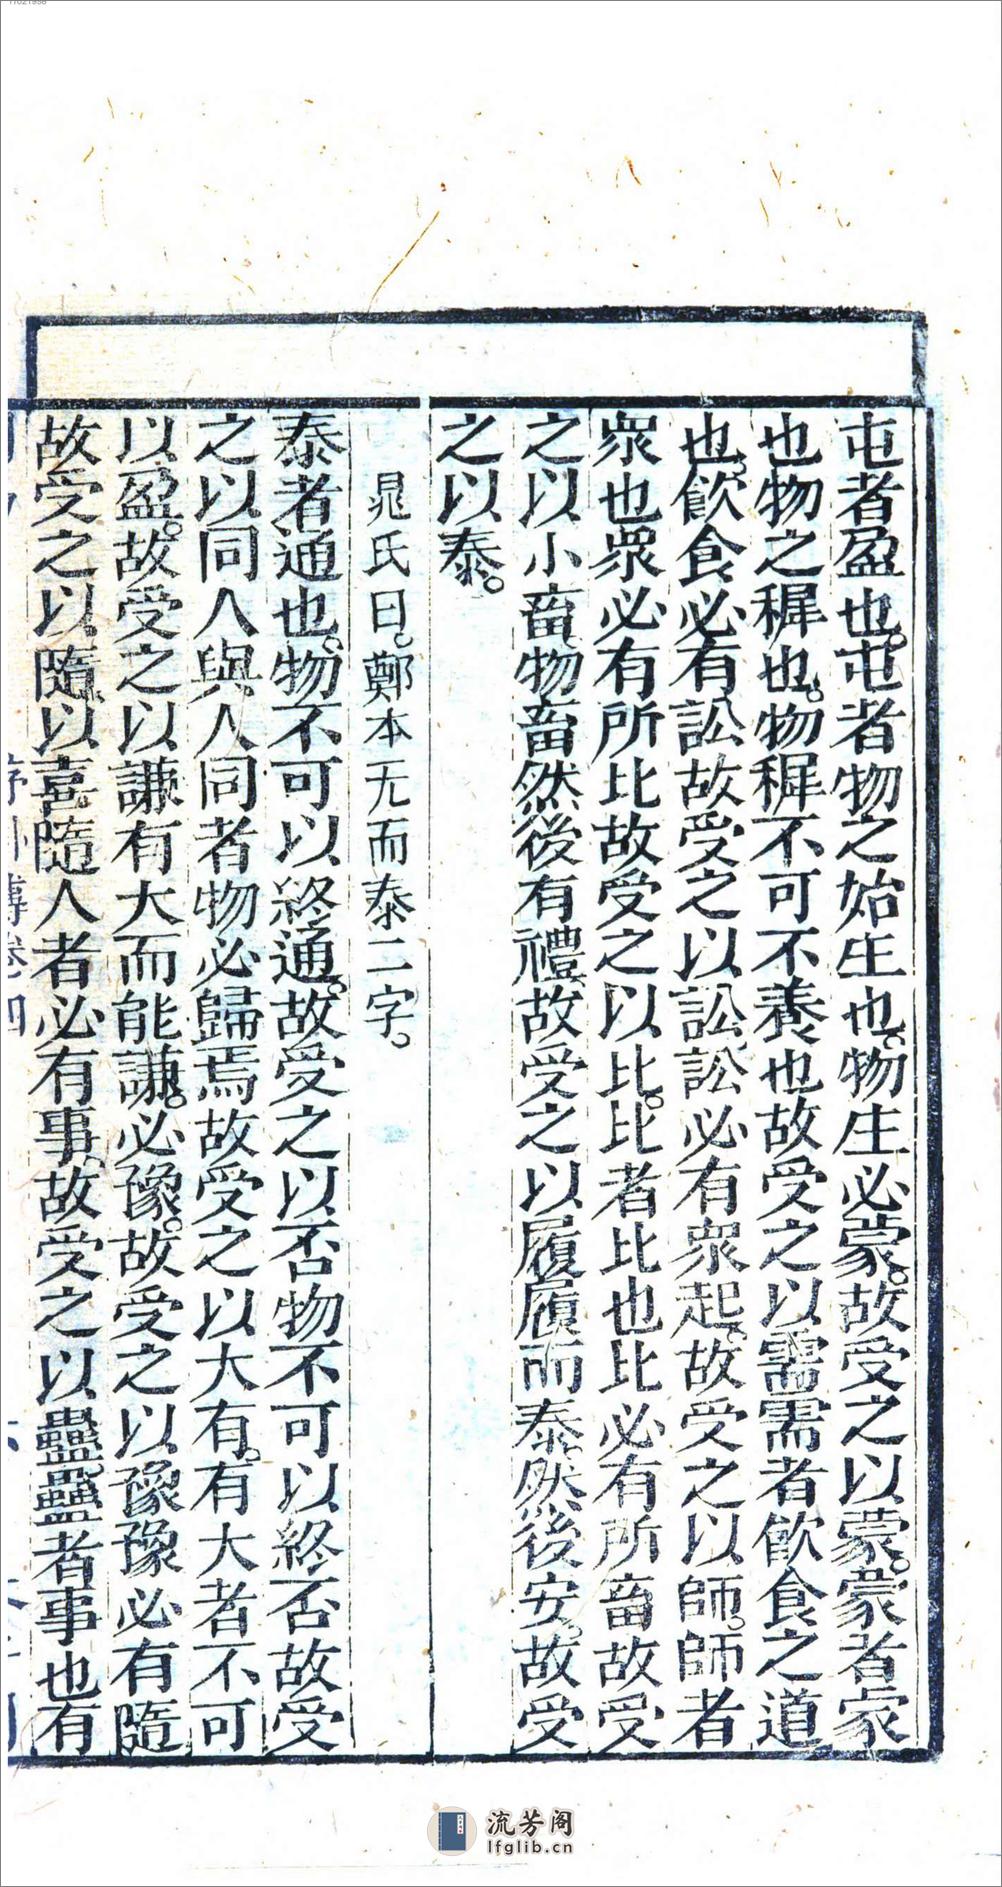 屯者盈也。屯者物之始生也。物生必蒙。故受之以蒙。蒙者家
也物之穉也。物穉不可不養也故受之以需需者飮食之道
也。飮食必有訟故受之以訟訟必有衆起。故受之以師。師者
衆也衆必有所比故受之以比。比者比也比必有所畜故受
之以小畜物畜然後有禮故受之以履履而泰然後安。故受
之以泰。
晁氏曰。鄭本无而泰二字。
泰者通也。物不可以終通。故受之以否物不可以終否故受
之以同人與人同者物必歸焉故受之以大有。有大者不可
以盈。故受之以謙有大而能謙。必豫。故受之以豫豫必有隨
故受之以隨以喜隨人者必有事。故受之以蠱蠱者事也有
序卦傳卷四
流芳阁
lfglib.cn